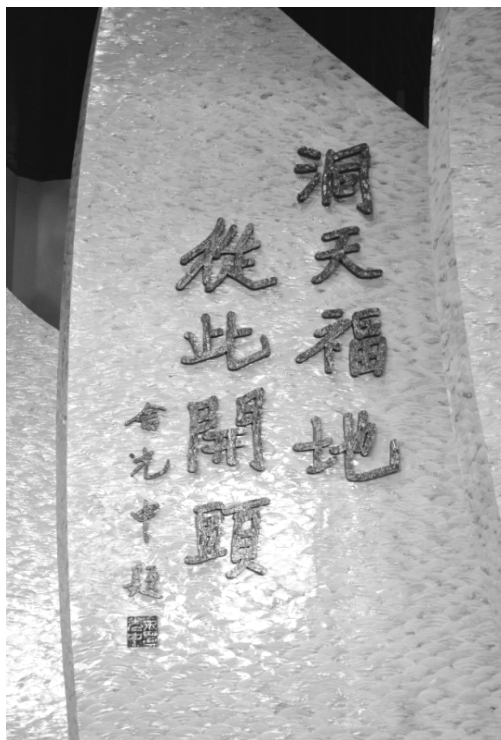 洞天福地
從此開頭
余光中題